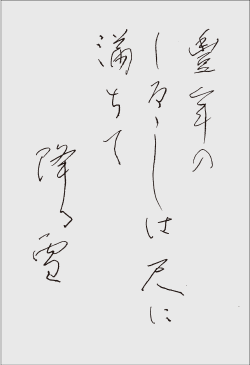 豊年の
しるしは尺に
満ちて
降る雪